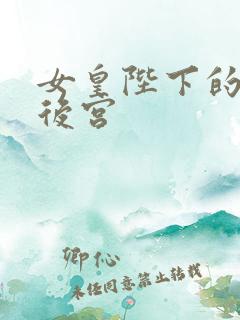 女皇陛下的
後宮
卿心
未经同意禁止转载